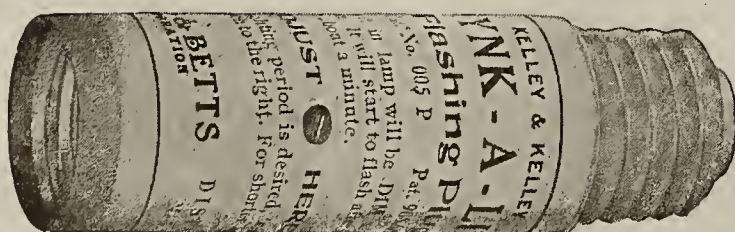 KELLEY & KELLEY
YNK-A-LI
lashing Pl
No. 005 P Pat. 90
in lamp will be
it will start to flash at
bout a minute.
JUST HER
hting period is desired
to the right. For short
BETTS DIS
RATION